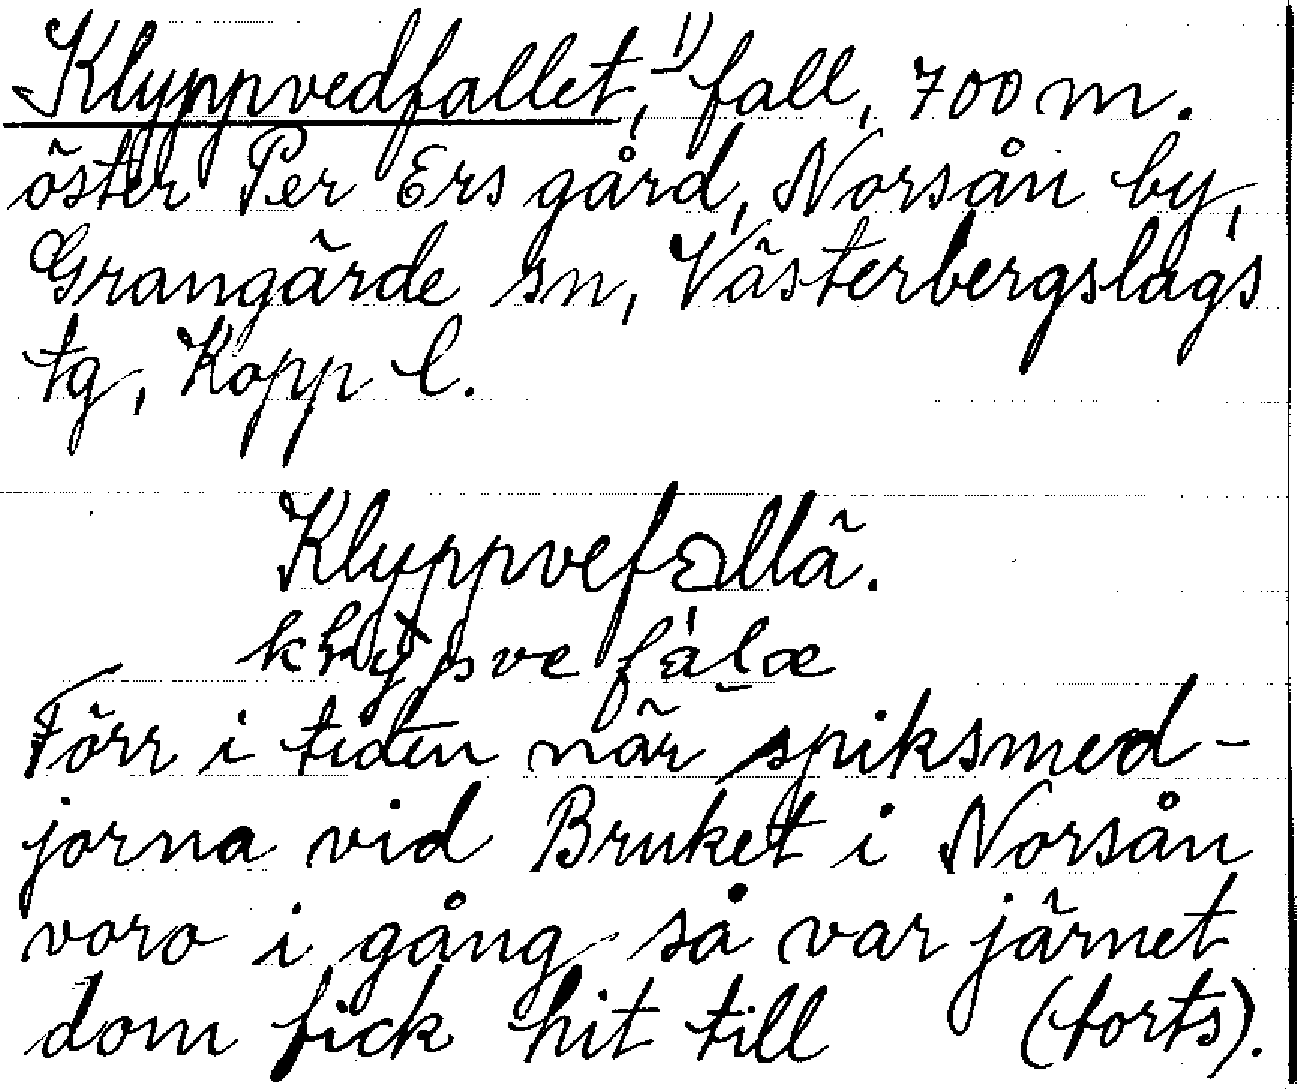 Klyppvedfallet,¹⁾ fall, 700 m.
öster Per Ers gård, Norsån by,
Grangärde sn, Västerbergslags
tg, Kopp l.
Klyppvefallä.
Förr i tiden när spiksmed-
jorna vid Bruket i Norsån
voro i gång så var järnet
dom fick hit till (forts).